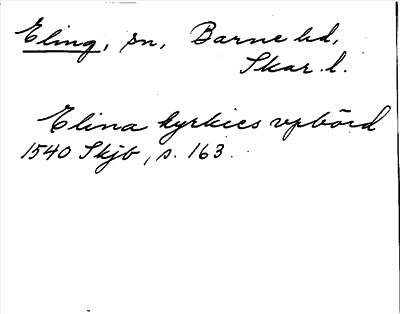 Eling, sn, Barne hd,
Skar. l.
Elina kyrkies vpbörd
1540 Skjb, s. 163.